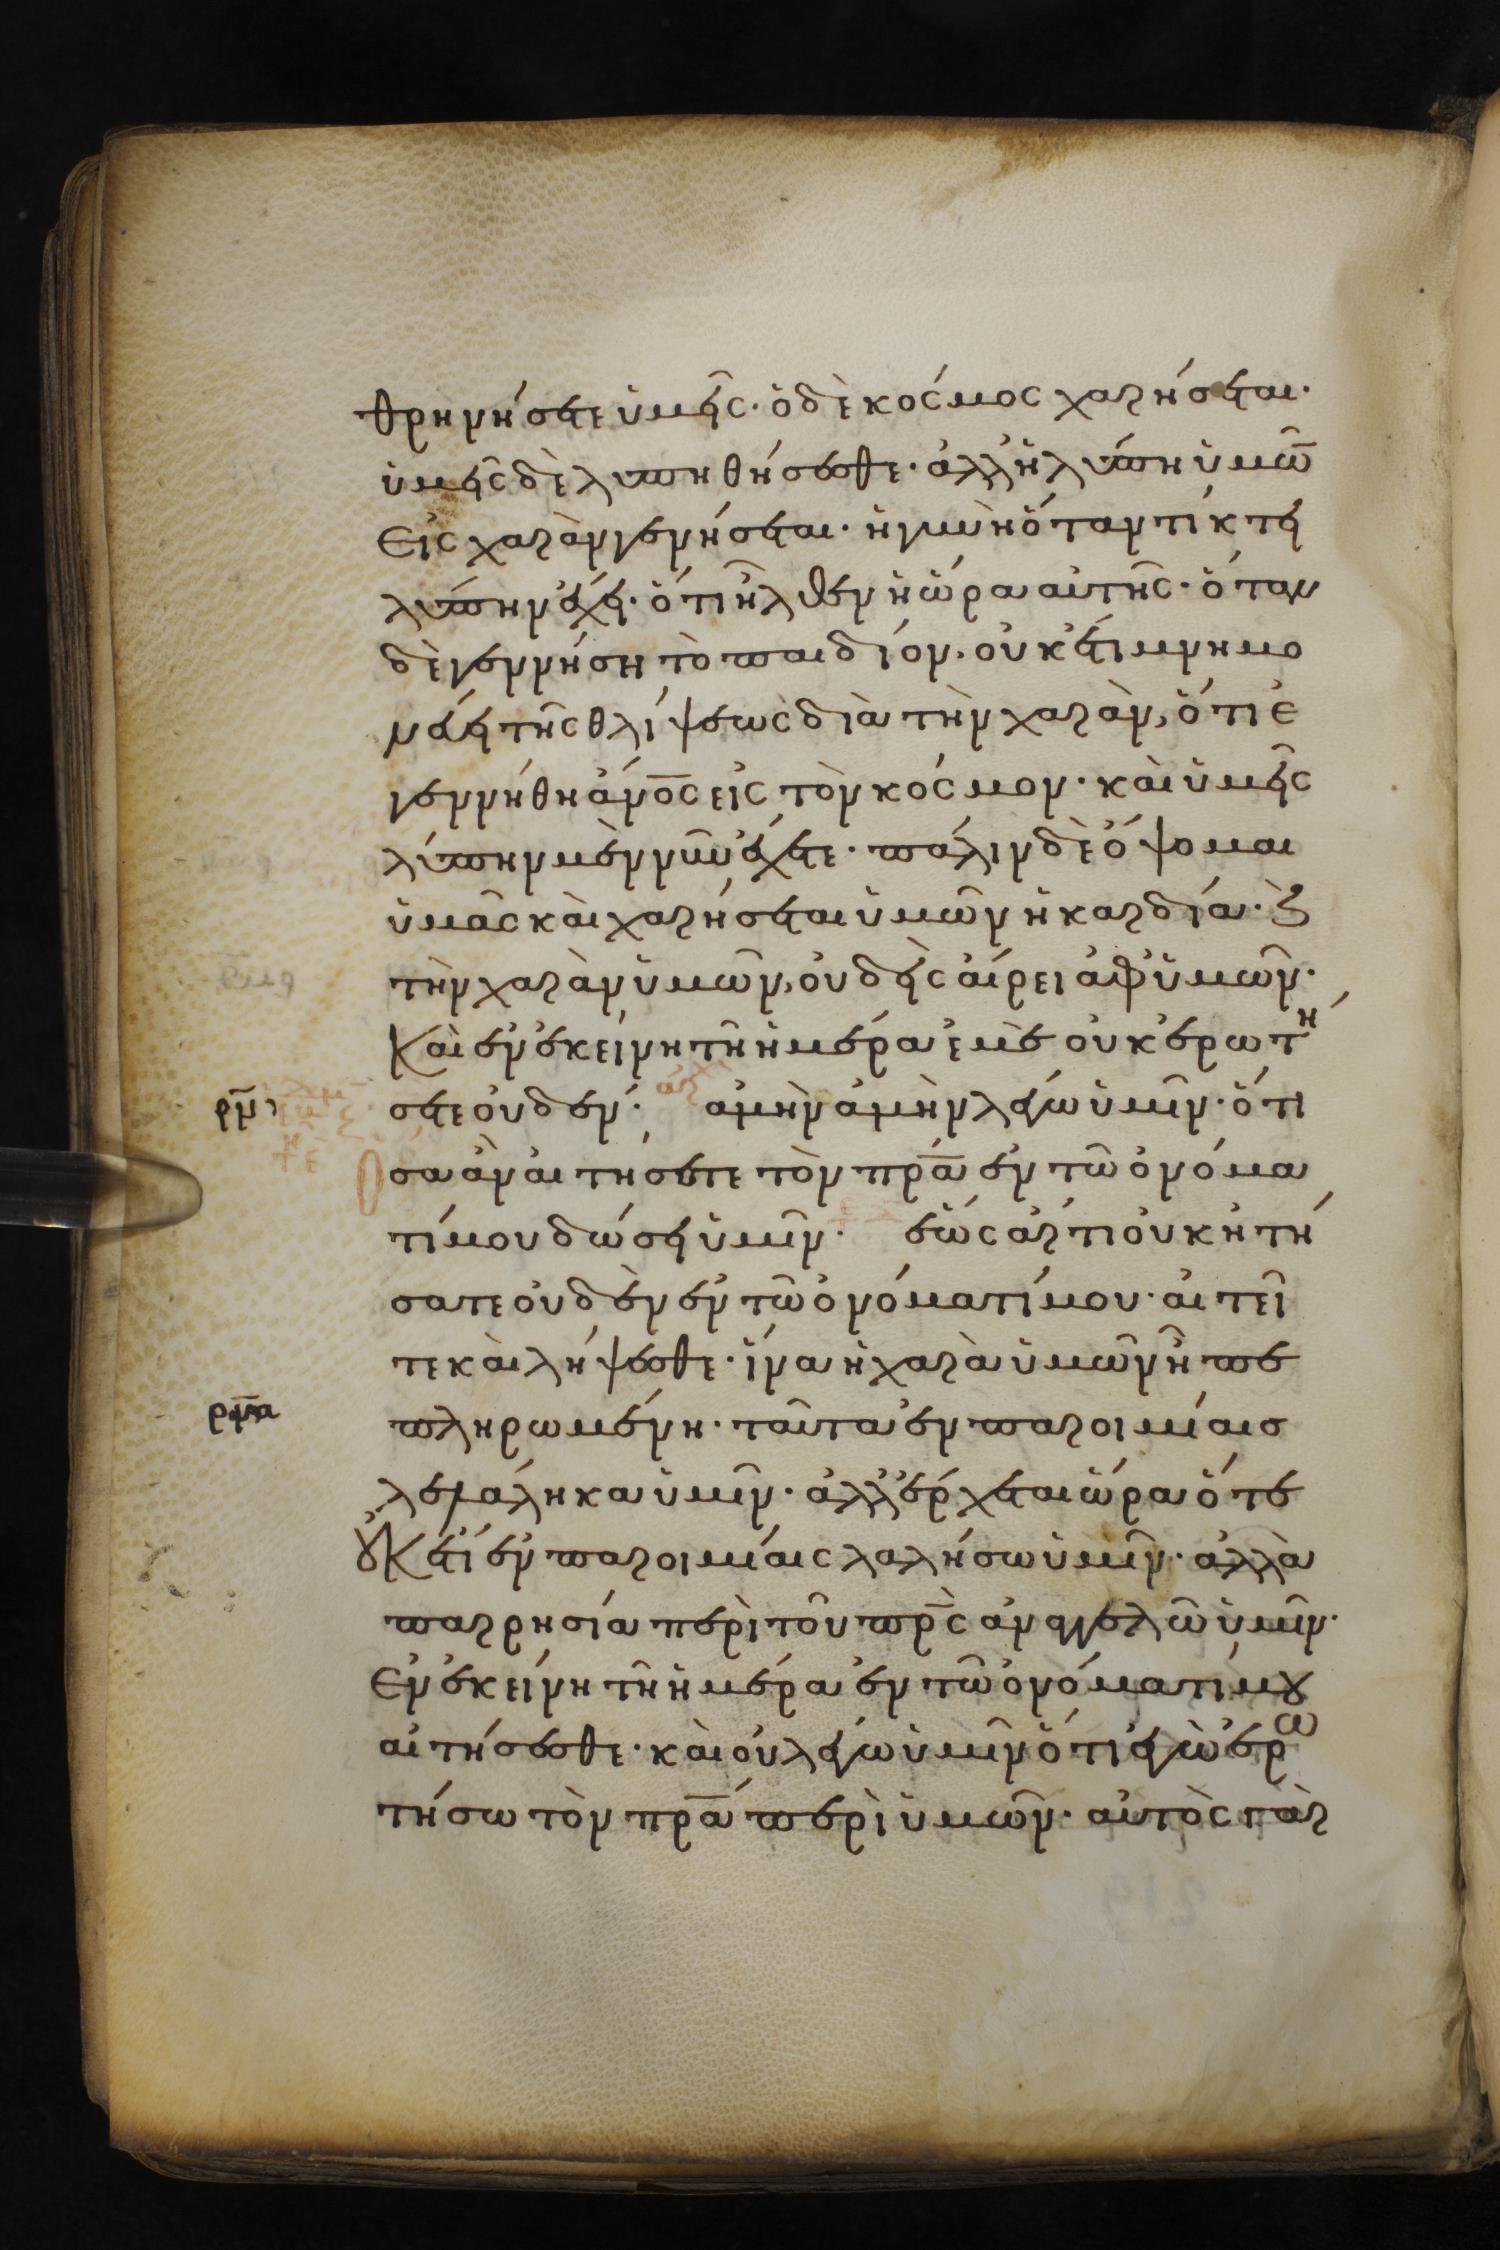 θρηνήσετε ὑμεῖς· ὁ δὲ κόσμος χαρήσεται·
ὑμεῖς δὲ λυπηθήσεσθε· ἀλλ' ἡ λύπη ὑμῶ̅
εἰς χαρὰν γενήσεται· ἡ γυνὴ ὅταν τίκτει
λύπην ἔχει· ὅτι ἦλθεν ἡ ὥρα αὐτῆς· ὅταν
δὲ γεννήση τὸ παιδίον, οὐκ ἔτι μνημο
νεύει τῆς θλίψεως διὰ τὴν χαρὰν, ὅτι ἐ
γεννήθη ἄν̅ο̅ς̅ εἰς τὸν κόσμον· καὶ ὑμεῖς
λύπην μὲν νῦν ἔχετε· πάλιν δὲ ὄψομαι
ὑμᾶς καὶ χαρήσεται ὑμῶν ἡ καρδία· ϗ̀
τὴν χαρὰν ὑμῶν, οὐδεὶς αἴρει ἀφ' ὑμῶν·
Καὶ ἐν ἐκείνη τῆ ἡμέρα ἐμὲ οὐκ ἐρωτή
σετε οὐδέν· ἀρχ ἀμὴν ἀμὴν λέγω ὑμῖν· ὅτι
ὅσα ἂν αἰτήσετε τὸν π̅ρ̅α̅ ἐν τῶ ὀνόμα
τί μου δώσει ὑμῖν· ἕως ἄρτι οὐκ ἠτή
σατε οὐδὲν ἐν τῶ ὀνόματί μου· αἰτεῖ
τε καὶ λήψεσθε· ἵνα ἡ χαρὰ ὑμῶν ἦ πε
πληρωμένη· ταῦτα ἐν παροιμίαις
λελάληκα ὑμῖν· ἀλλ' ἔρχεται ὥρα ὅτε
οὐκ ἔτι ἐν παροιμίαις λαλήσω ὑμῖν· ἀλλὰ
παρρησία περὶ τοῦ π̅ρ̅ς̅ ἀναγγελῶ ὑμῖν·
Ἐν ἐκείνη τῆ ἡμέρα ἐν τῶ ὀνόματί μου
αἰτήσεσθε· καὶ οὐ λέγω ὑμῖν ὅτι ἐγὼ ἐρω
τήσω τὸν π̅ρ̅α̅ περὶ ὑμῶν· αὐτὸς γὰρ
ρμ
ρμα